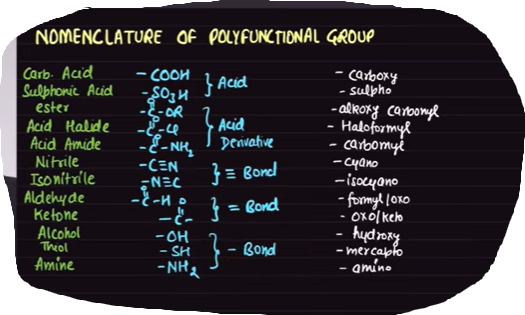 NOMENCLATURE OF POLYFUNCTIONAL GROUP
Carb. Acid -COOH } Acid - carboxy
Sulphonic Acid -SO3H - sulpho
ester -C-OR - alkoxy Carbonyl
O
Acid Halide -C-Cl } Acid Derivative - Haloformyl
O
Acid Amide -C-NH2 - carbomyl
O
Nitrile -C≡N } ≡ Bond - cyano
Isonitrile -N≡C - isocyano
Aldehyde -C-H } = Bond - formyl/oxo
O
Ketone -C- - oxo/keto
O
Alcohol -OH } - Bond - hydroxy
Thiol -SH - mercapto
Amine -NH2 - amino